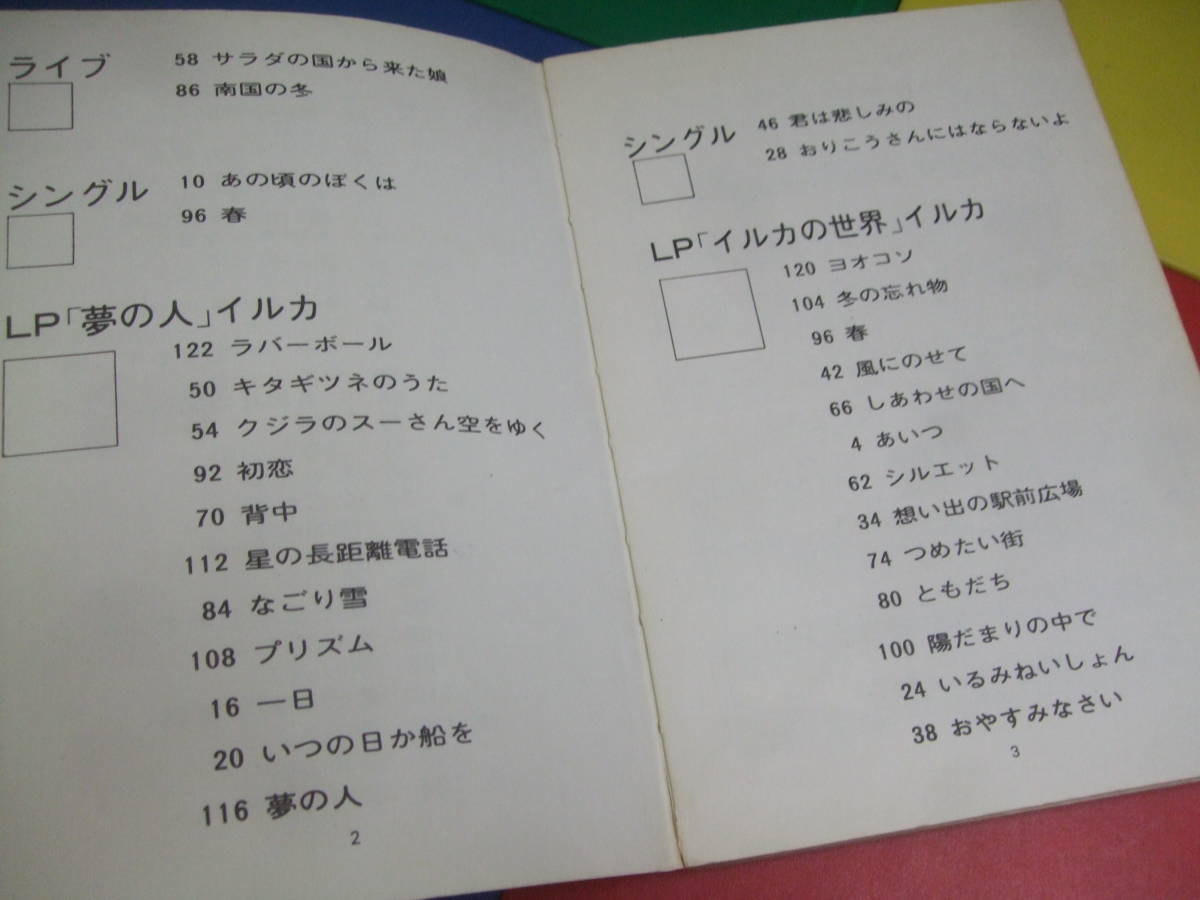 ライブ
58 サラダの国から来た娘
86 南国の冬
シングル
10 あの頃のぼくは
96 春
LP「夢の人」イルカ
122 ラバーボール
50 キタギツネのうた
54 クジラのスーさん空をゆく
92 初恋
70 背中
112 星の長距離電話
84 なごり雪
108 プリズム
16 一日
20 いつの日か船を
116 夢の人
2
シングル
46 君は悲しみの
28 おりこうさんにはならないよ
LP「イルカの世界」イルカ
120 ヨオコソ
104 冬の忘れ物
96 春
42 風にのせて
66 しあわせの国へ
4 あいつ
62 シルエット
34 想い出の駅前広場
74 つめたい街
80 ともだち
100 陽だまりの中で
24 いるみねいしょん
38 おやすみなさい
3